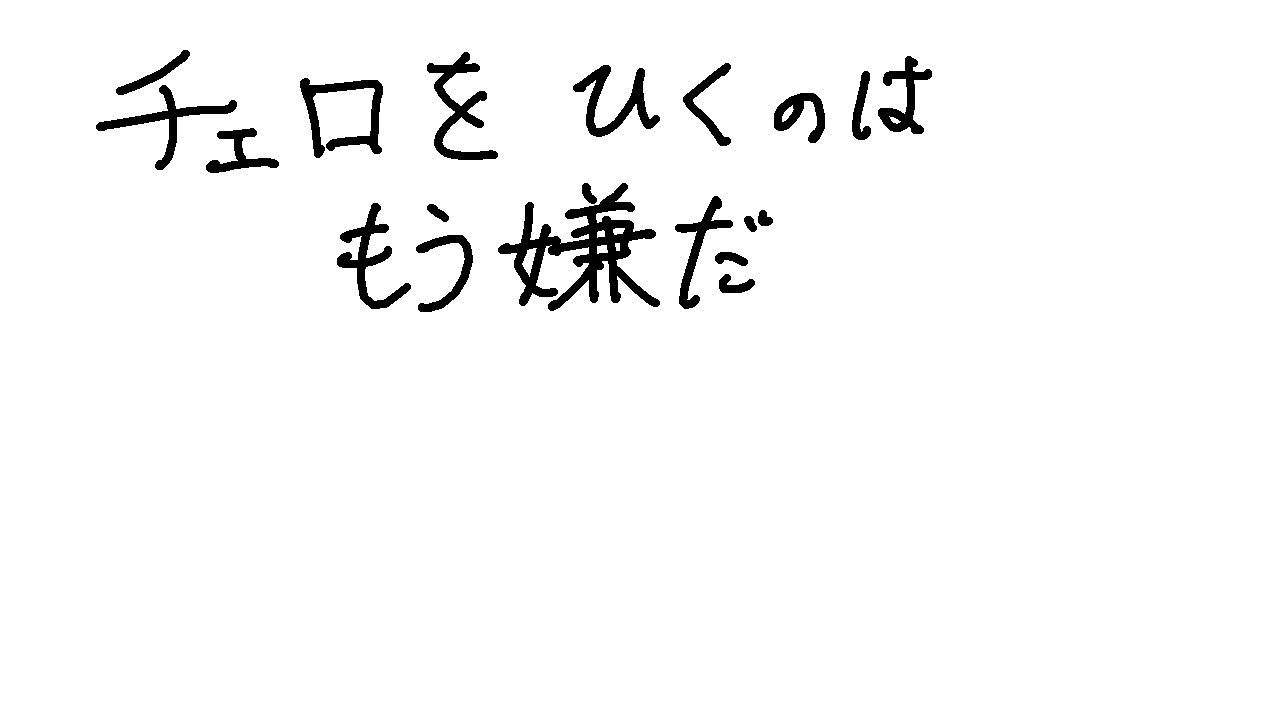 チェロをひくのは
もう嫌だ